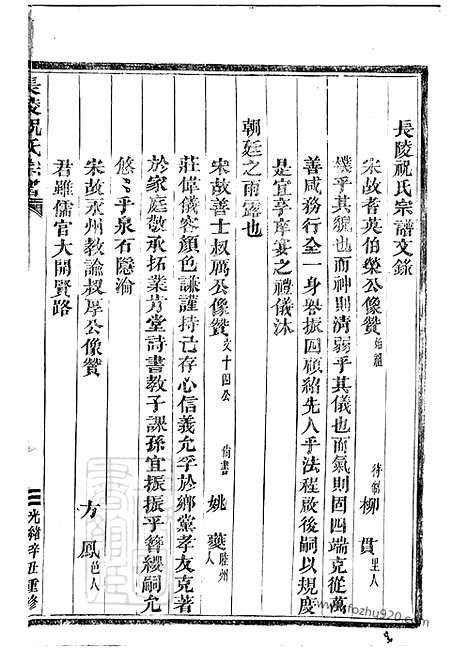 長陵祝氏宗譜文錄
宋故耆英伯榮公像贊 始祖 待制 柳貫 里人
樸乎其貌也而神則清弱乎其儀也而氣則固四端克從萬
善咸務行全一身譽振四顧紹先人乎法程啟後嗣以規度
是宜享賓宴之禮儀沐
朝廷之雨露也
宋故善士叔厲公像贊 文十四公 尚書 姚夔 睦州人
莊偉儀容顏色謙謹持己存心信義允孚於鄉黨孝友克著
於家庭敬承拓業肯堂詩書教子課孫宜振振乎簪纓嗣允
悠〻乎泉石隱淪
宋故永州教諭叔厚公像贊 方鳳 邑人
君雖儒官大開賢路
長陵祝氏宗譜
光緒辛丑重修
www.fozhu920.com